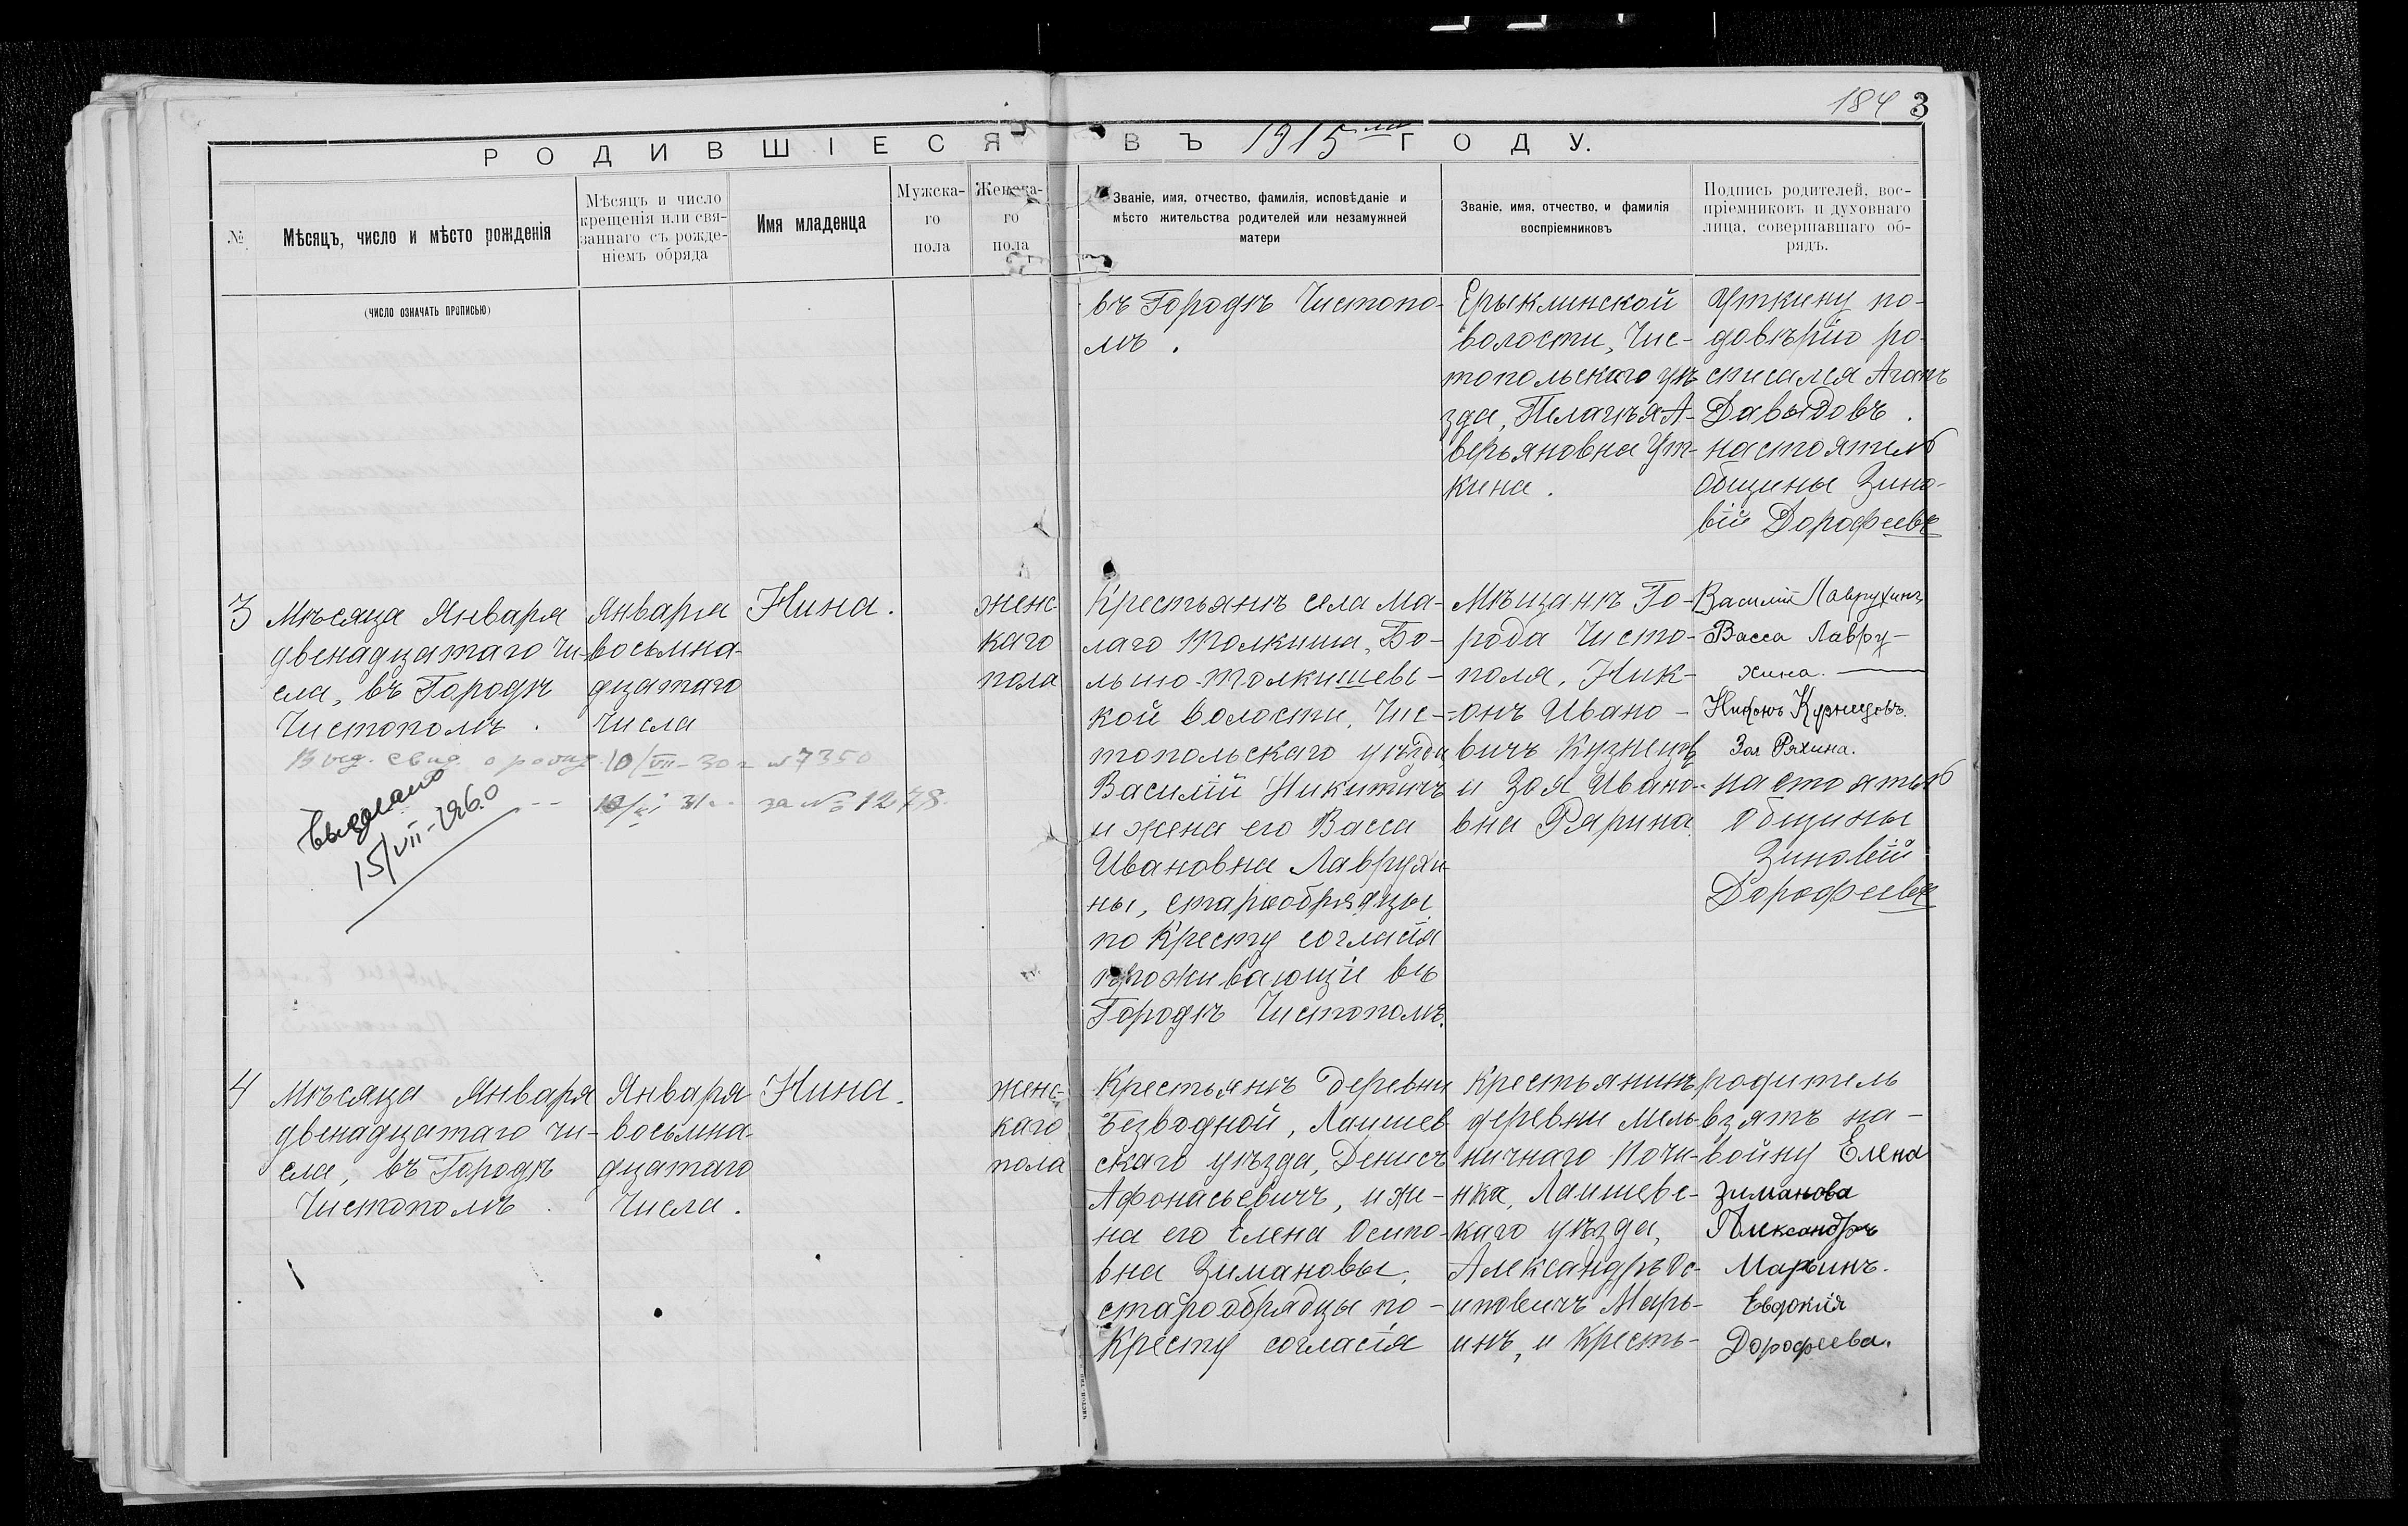 184 3
РОДИВШІЕСЯ ВЪ 1915мъ ГОДУ.
№
Мѣсяцъ, число и мѣсто рожденія
(ЧИСЛО ОЗНАЧАТЬ ПРОПИСЬЮ)
Мѣсяцъ и число
крещенія или свя-
заннаго съ рожде-
ніемъ обряда
Имя младенца
Мужска-
го
пола
Женска-
го
пола
Званіе, имя, отчество, фамилія, исповѣданіе и
мѣсто жительства родителей или незамужней
матери
Званіе, имя, отчество, и фамилія
воспріемниковъ
Подпись родителей, вос-
пріемниковъ и духовнаго
лица, совершавшаго об-
рядъ.
въ Городѣ Чистопо-
лѣ.
Ерыклинской
волости, Чис-
топольскаго уѣ
зда, Пелагѣя А-
верьяновна Ут-
кина.
Уткину по-
довѣрію ро-
списался Агапъ
Давыдовъ.
настоятель
Общины Зино-
вій Дорофеевъ
3
Мѣсяца Января
двенадцатаго чи-
сла, въ Городѣ
Чистополѣ.
Января
восьмна-
дцатаго
числа
Нина.
женс-
каго
пола
Выд. свид. о рожд. 10/VII-30 г №7350
31 г. за №1278.
Выдано
15/VII-1960
Крестьянѣ села Ма-
лаго Толкиша, Бо-
льше-Толкишевс-
кой волости, Чис-
топольскаго уѣзда
Василій Никитичъ
и жена его Васса
Ивановна Лаврухи-
ны, старообрядцы
по Кресту согласія
проживающіе въ
Городѣ Чистополѣ.
Мѣщанѣ Го-
рода Чисто-
поля, Ник-
онъ Ивано-
вичъ Кузнецовъ
и Зоя Ивано-
вна Рярина
Василій Лаврухинъ
Васса Лавру-
хина.
Никонъ Кузнецовъ.
Зоя Ряхина.
настоятель
Общины
Зиновій
Дорофеевъ
4
Мѣсяца Января
двенадцатаго чи-
сла, въ Городѣ
Чистополѣ.
Января
восьмна-
дцатаго
числа.
Нина.
женс-
каго
пола
Крестьянѣ деревни
Безводной, Лаишев-
скаго уѣзда, Денисъ
Афонасьевичъ, и же-
на его Елена Осипо-
вна Зимановы,
старообрядцы по-
Кресту согласія
Крестьянинъ
деревни Мель-
ничнаго Почи-
нка, Лаишевс-
каго уѣзда,
Александръ Ос-
иповичъ Марь-
инъ, и Кресть-
родитель
взятъ на-
войну Елена
Зиманова
Александръ
Марьинъ.
Евдокія
Дорофеева.